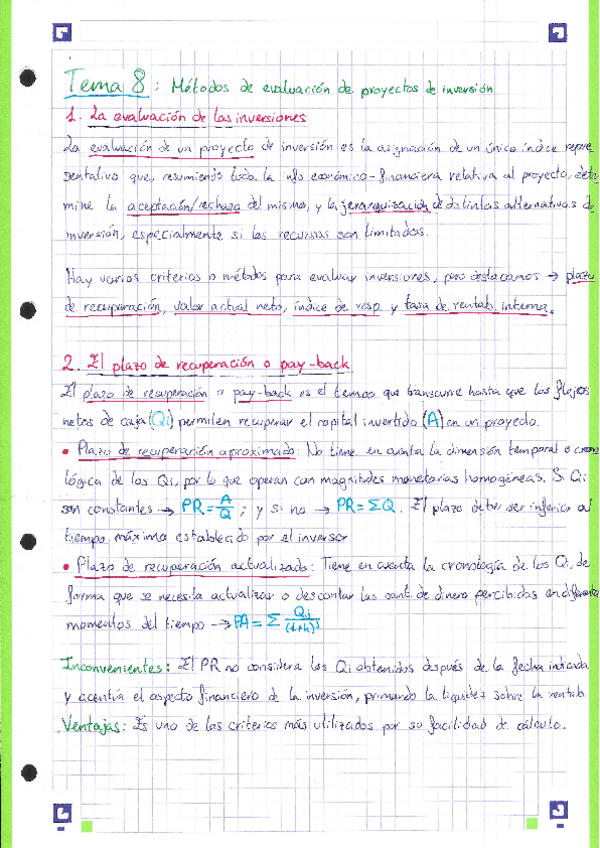 Tema 8: Métodos de evaluación de proyectos de inversión
1. La evaluación de las inversiones
La evaluación de un proyecto de inversión es la asignación de un único índice repre
sentativo que, resumiendo toda la info económico-financiera relativa al proyecto, deter
mine la aceptación/rechazo del mismo, y la jerarquización de distintas alternativas de
inversión, especialmente si los recursos son limitados.
Hay varios criterios o métodos para evaluar inversiones, pero destacamos → plazo
de recuperación, valor actual neto, índice de resp. y tasa de rentab. interna.
2. El plazo de recuperación o pay-back
El plazo de recuperación o pay-back es el tiempo que transcurre hasta que los flujos
netos de caja (Qi) permiten recuperar el capital invertido (A) en un proyecto.
• Plazo de recuperación aproximado: No tiene en cuenta la dimensión temporal o crono
lógica de los Qi, por lo que operan con magnitudes monetarias homogéneas. Si Qi
son constantes → PR = A/Q ; y si no → PR = ΣQ. El plazo debe ser inferior al
tiempo máximo establecido por el inversor
• Plazo de recuperación actualizado: Tiene en cuenta la cronología de los Qi, de
forma que se necesita actualizar o descontar las cant. de dinero percibidas en diferentes
momentos del tiempo → PA = Σ Qi/(1+k)^i
Inconvenientes: El PR no considera los Qi obtenidos después de la fecha indicada
y acentúa el aspecto financiero de la inversión, primando la liquidez sobre la rentab.
Ventajas: Es uno de los criterios más utilizados por su facilidad de cálculo.